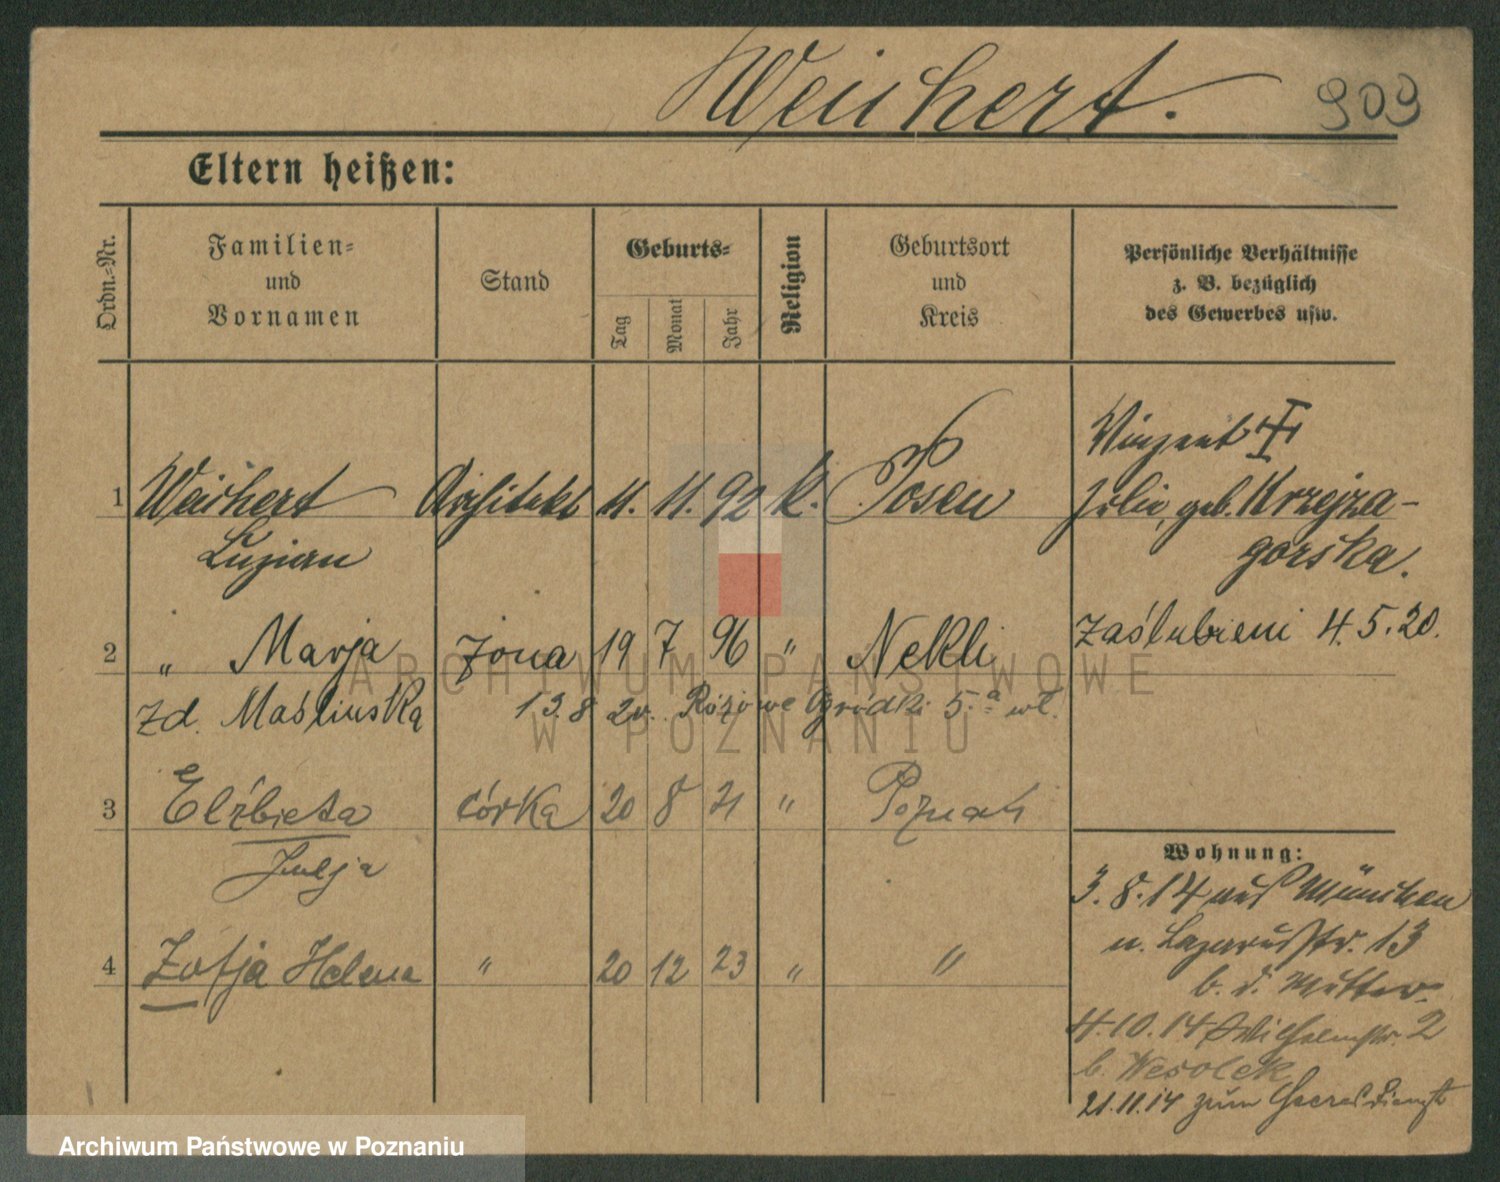 Weichert.
909
Eltern heißen:
Ordn.-Nr.
Familien-
und
Vornamen
Stand
Geburts-
Tag
Monat
Jahr
Religion
Geburtsort
und
Kreis
Persönliche Verhältnisse
z. B. bezüglich
des Gewerbes usw.
Vinzent
1 Weichert Architekt 11. 11. 92 k. Posen
Luzian
Julie, geb. Krzejza-
gorska.
2 " Marja żona 19 7 96 " Nekli
zaślubieni 4.5.20.
zd. Maślińska
13.8 20. Różowe Ogródki 5.a wł.
3 Elżbieta córka 20 8 21 " Poznań
Julja
4 Zofja Helena " 20 12 23 " "
Wohnung:
3.8.14 aus München
n. Lazarusstr. 13
b. d. Mutter.
4.10.14 Wilhelmstr. 2
b. Wesolek
21.11.14 zum Heeresdienst
ARCHIWUM PAŃSTWOWE
W POZNANIU
Archiwum Państwowe w Poznaniu